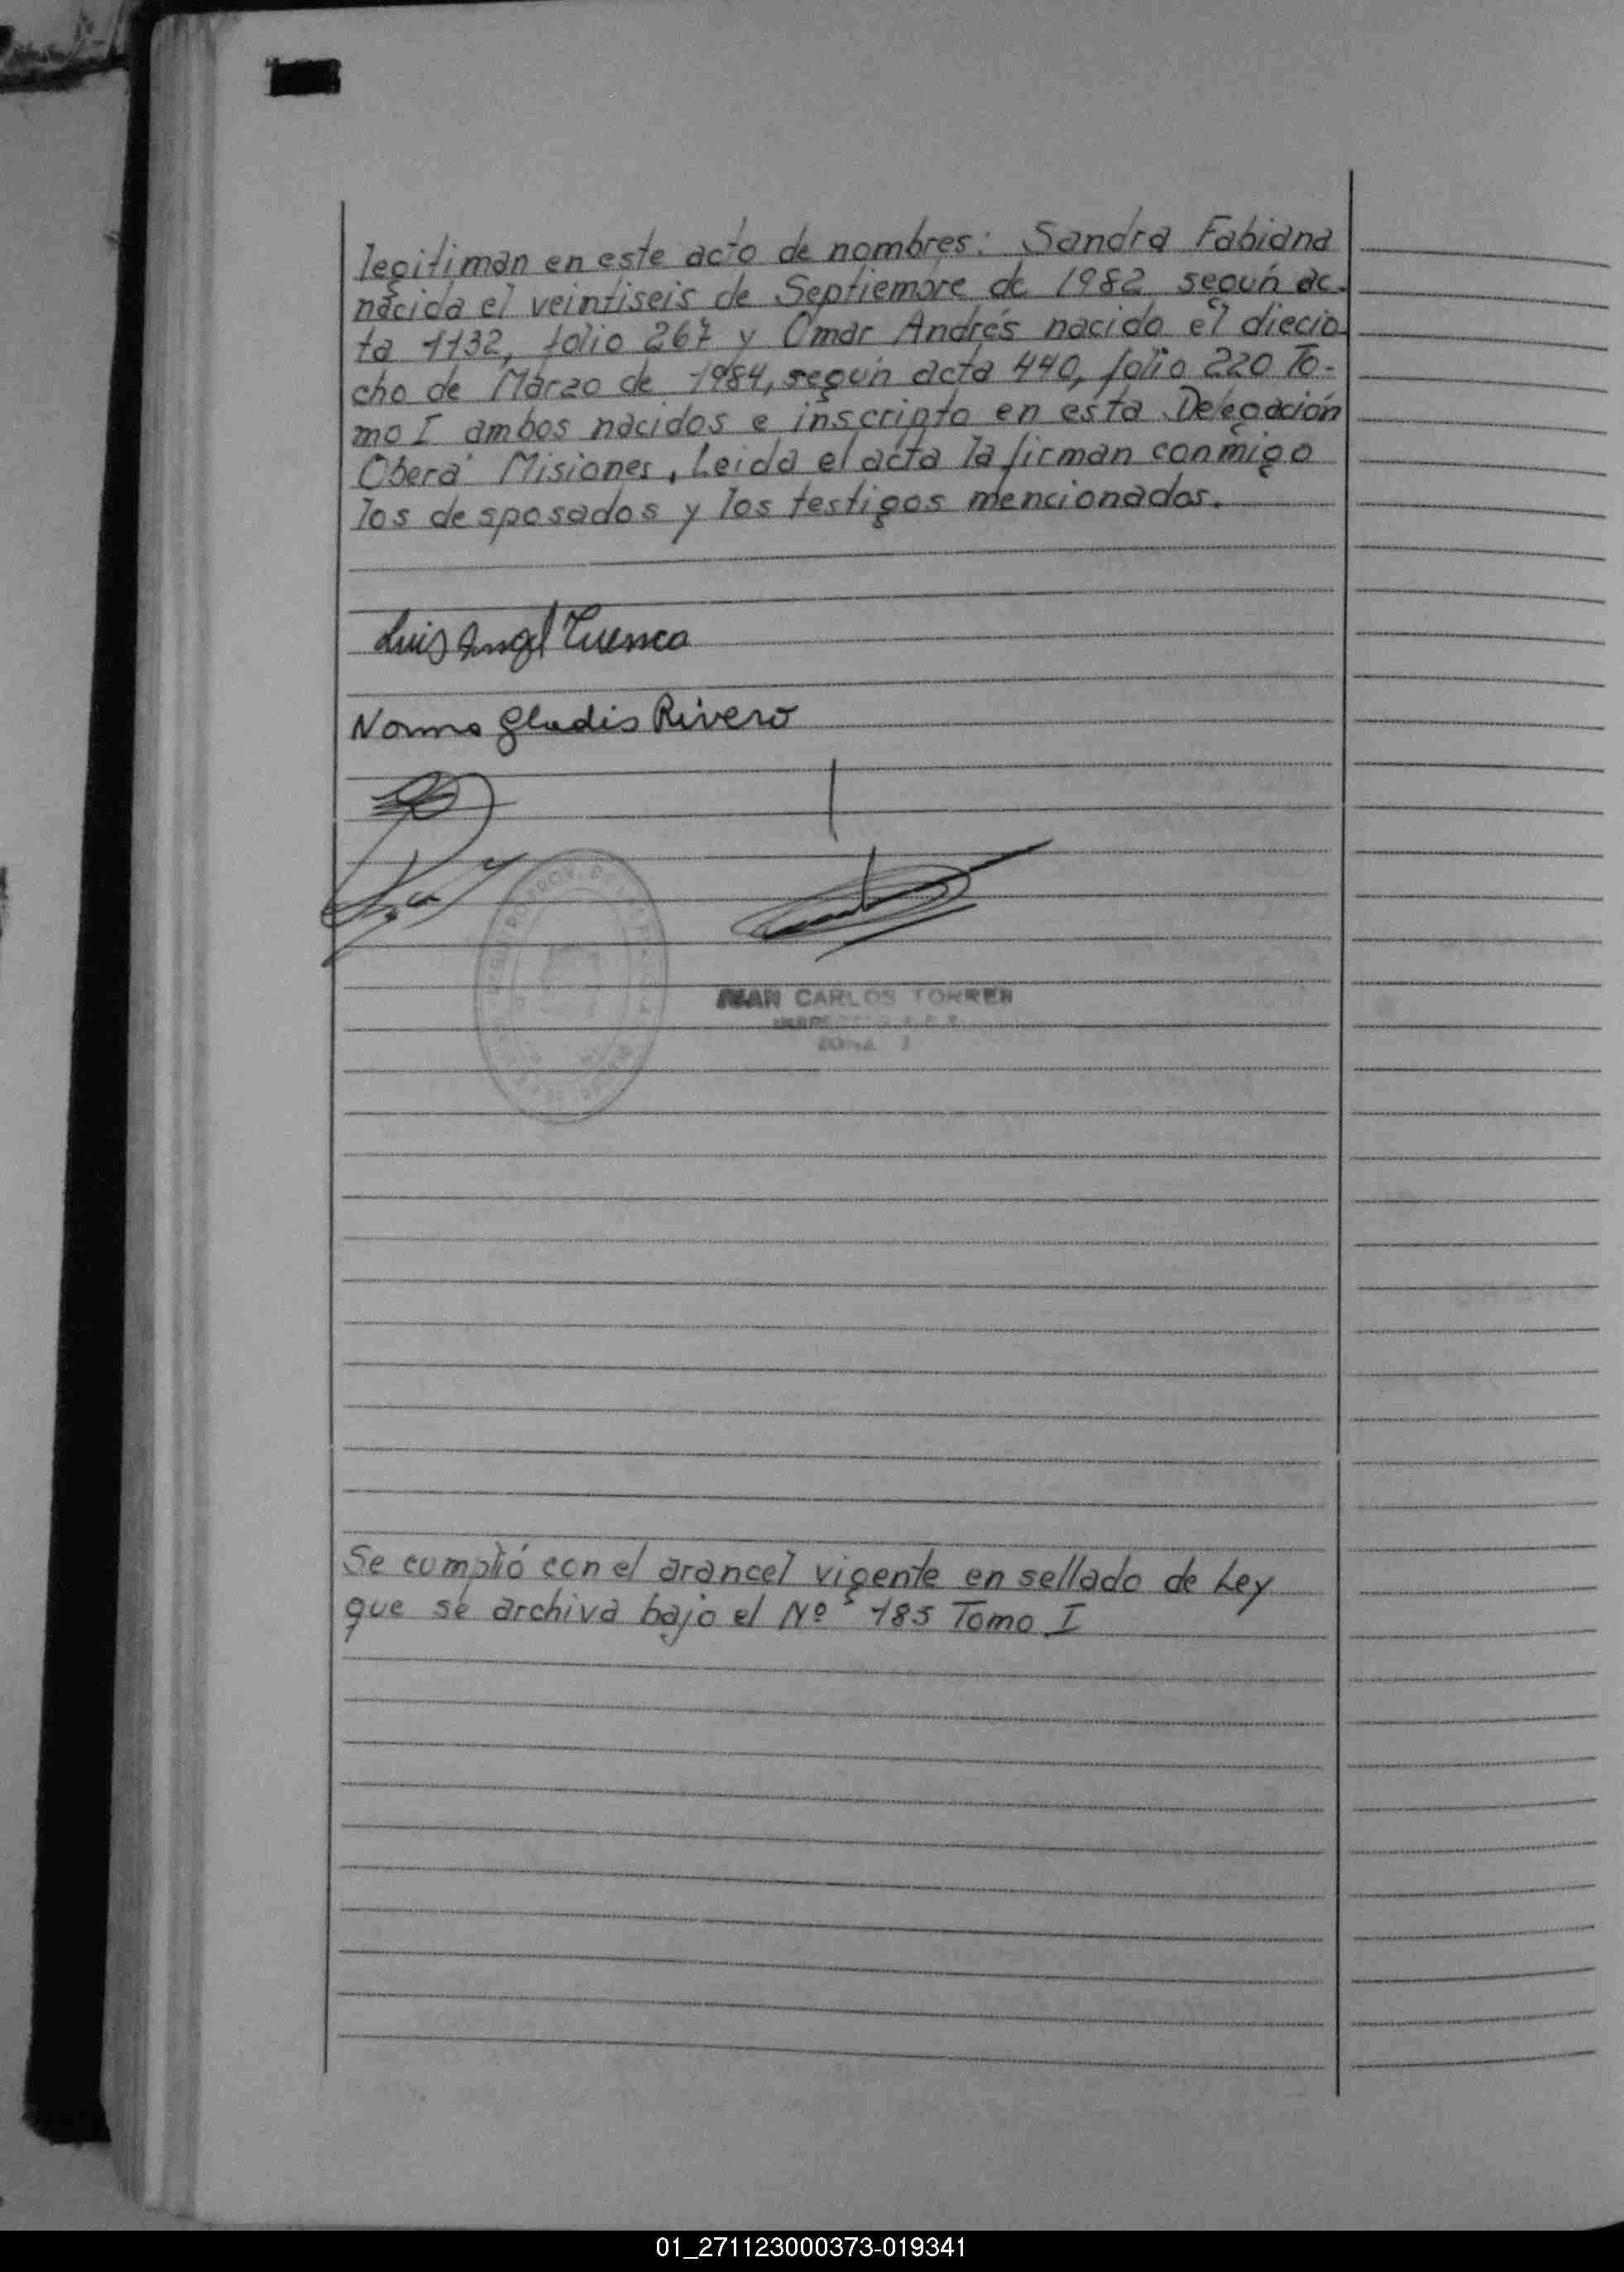 legitiman en este acto de nombres: Sandra Fabiana
nacida el veintiseis de Septiembre de 1982 según ac-
ta 1132, folio 267 y Omar Andrés nacido el diecio
cho de Marzo de 1984, según acta 440, folio 220 To-
mo I ambos nacidos e inscripto en esta Delegación
Oberá Misiones, Leida el acta la firman conmigo
los desposados y los testigos mencionados.
Luis Angel Cuenca
Norma Gladis Rivero
JUAN CARLOS TORRES
ZONA
Se cumplió con el arancel vigente en sellado de Ley
que se archiva bajo el Nº 185 Tomo I
01_271123000373-019341